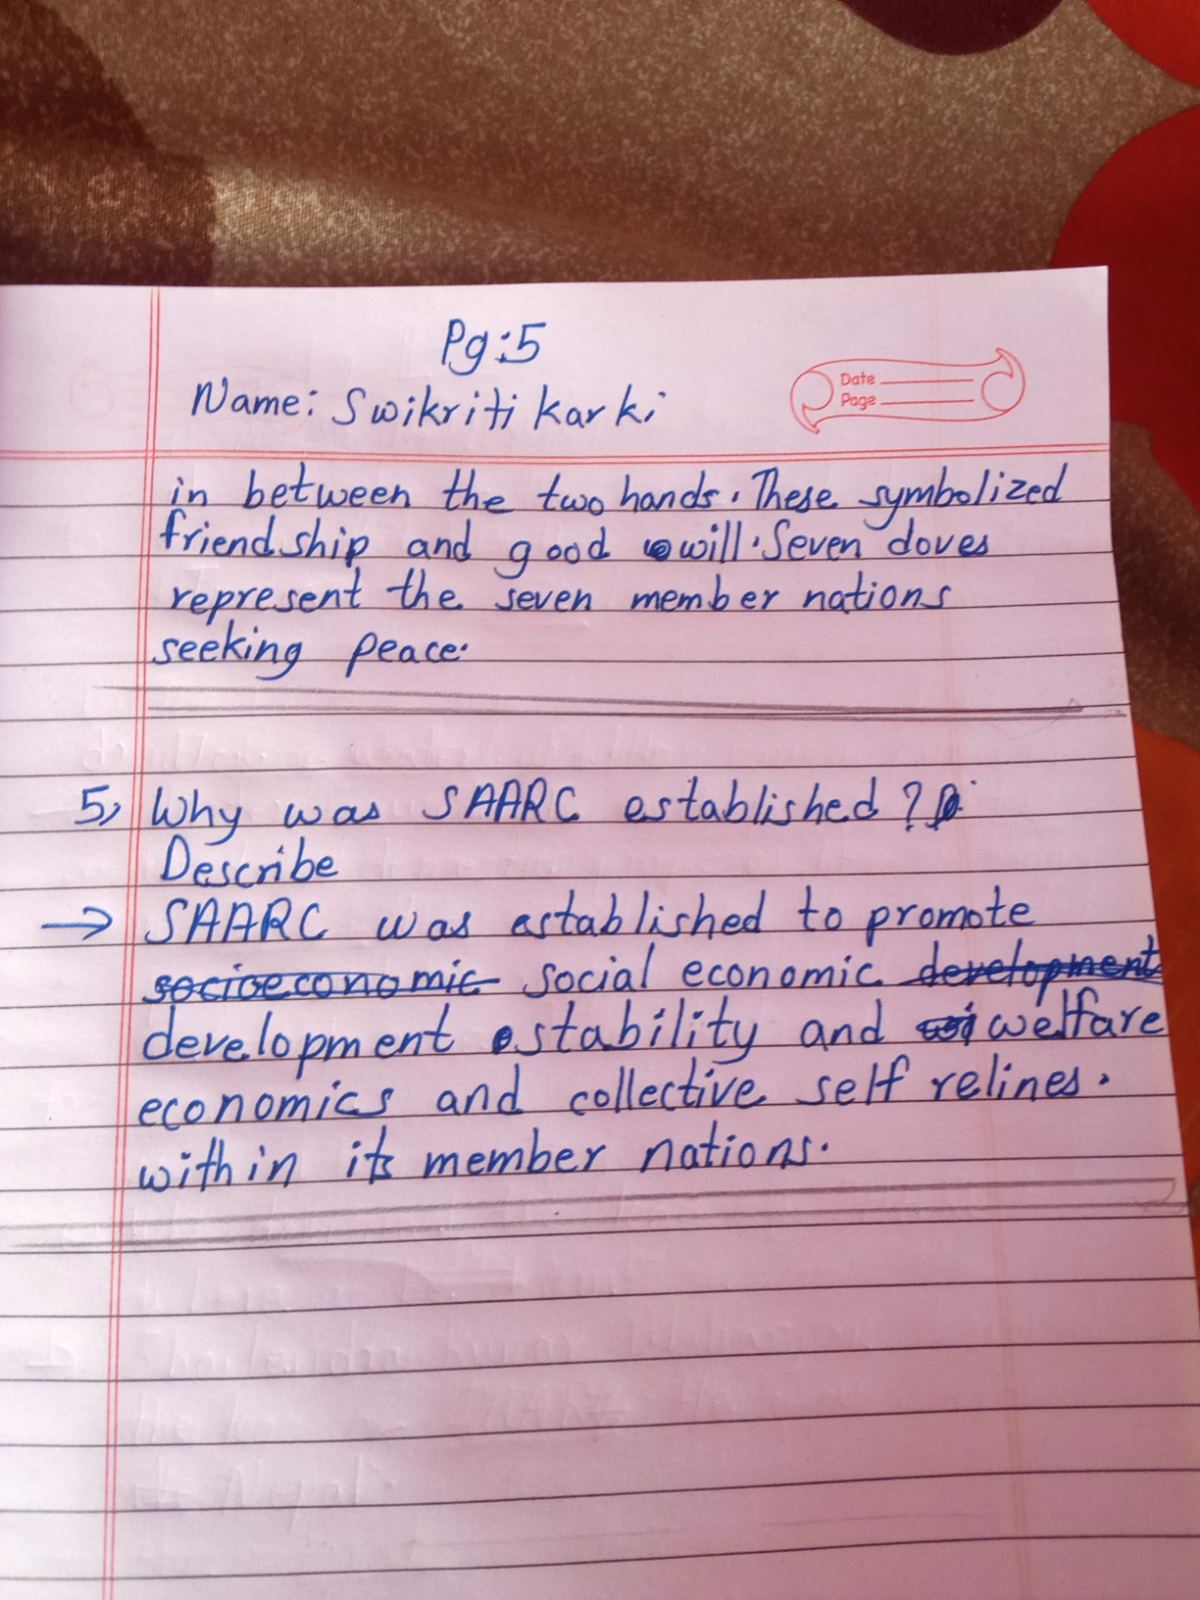 Pg:5
Name: Swikriti Karki
Date
Page
in between the two hands. These symbolized
friendship and good will. Seven doves
represent the seven member nations
seeking peace.
5) Why was SAARC established?
Describe
→ SAARC was established to promote
socioeconomic social economic development
development stability and welfare
economics and collective self relines.
within its member nations.